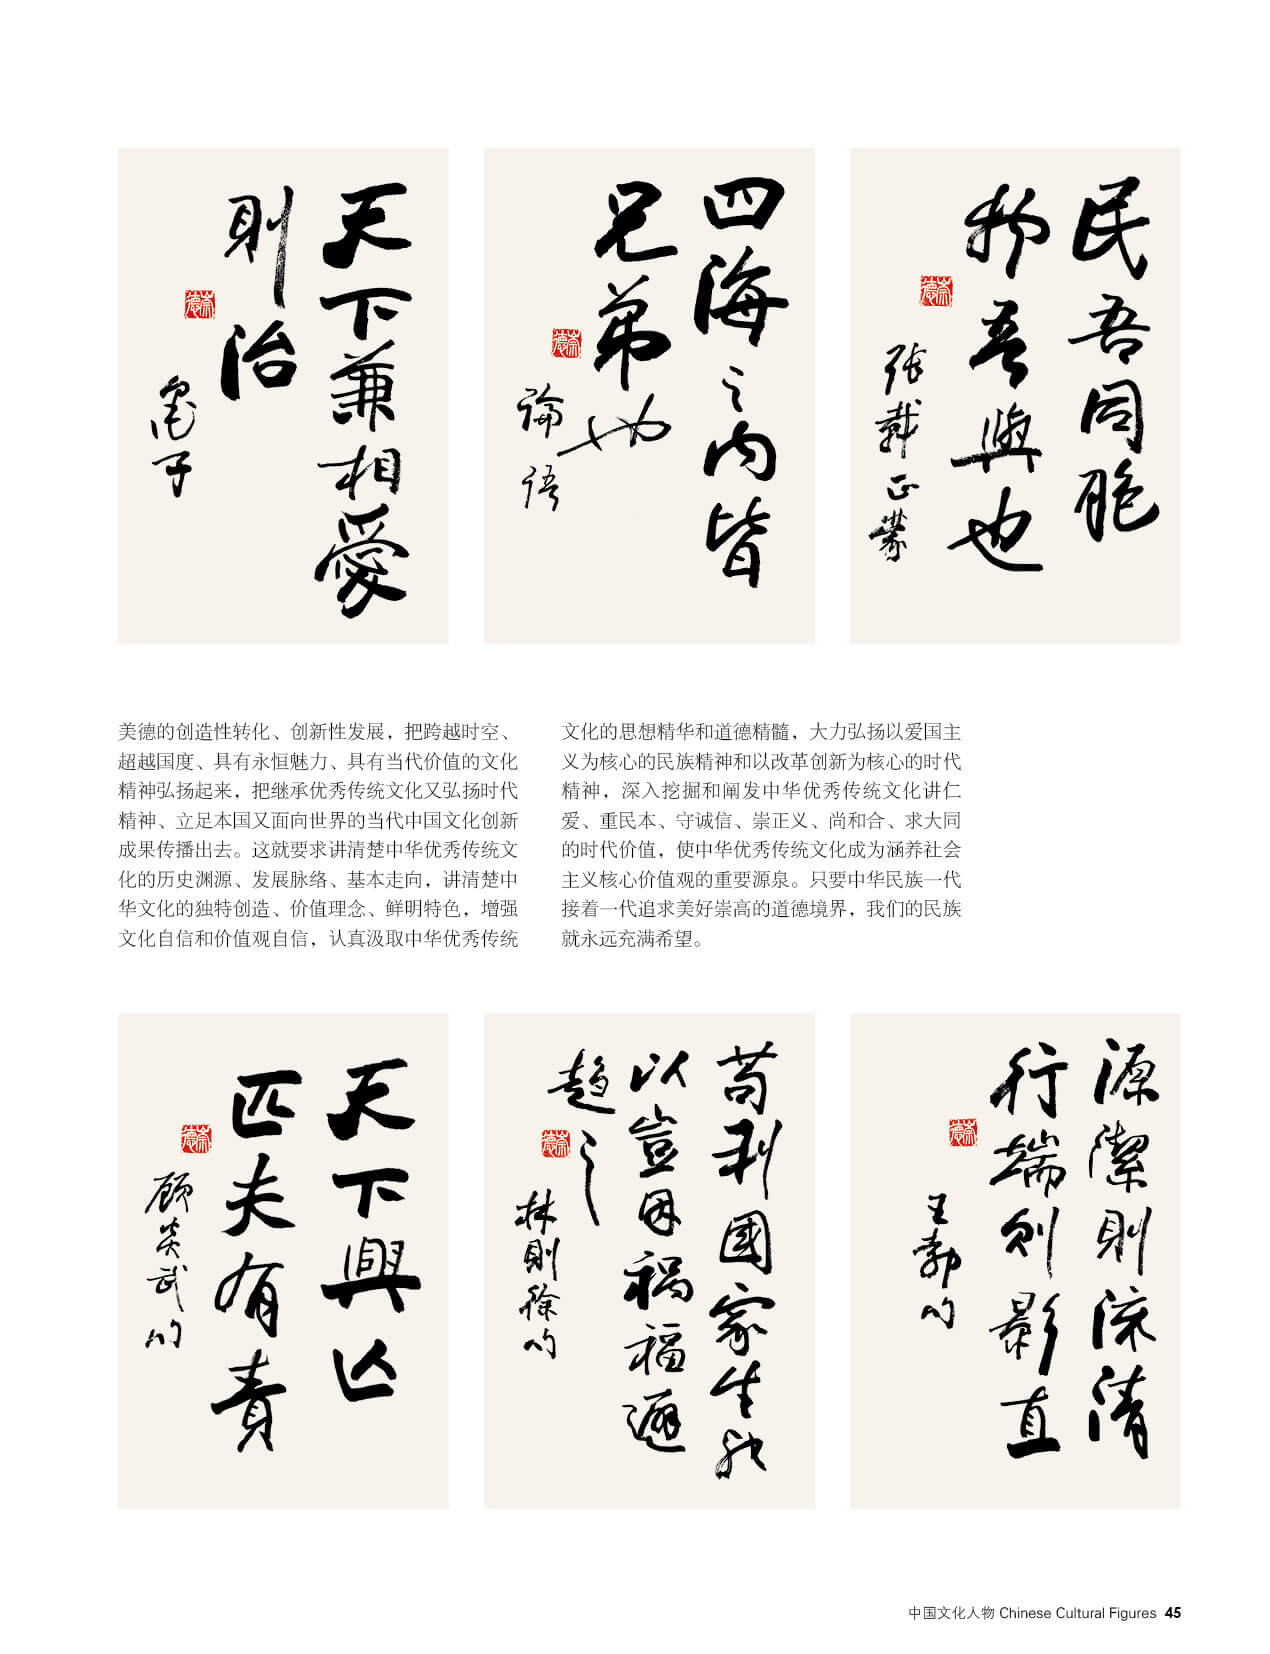 天下兼相愛
則治
崇德
墨子
四海之内皆
兄弟也
崇德
論语
民吾同胞
物吾與也
崇德
张載正蒙
美德的创造性转化、创新性发展，把跨越时空、
超越国度、具有永恒魅力、具有当代价值的文化
精神弘扬起来，把继承优秀传统文化又弘扬时代
精神、立足本国又面向世界的当代中国文化创新
成果传播出去。这就要求讲清楚中华优秀传统文
化的历史渊源、发展脉络、基本走向，讲清楚中
华文化的独特创造、价值理念、鲜明特色，增强
文化自信和价值观自信，认真汲取中华优秀传统
文化的思想精华和道德精髓，大力弘扬以爱国主
义为核心的民族精神和以改革创新为核心的时代
精神，深入挖掘和阐发中华优秀传统文化讲仁
爱、重民本、守诚信、崇正义、尚和合、求大同
的时代价值，使中华优秀传统文化成为涵养社会
主义核心价值观的重要源泉。只要中华民族一代
接着一代追求美好崇高的道德境界，我们的民族
就永远充满希望。
天下興亡
匹夫有責
崇德
顾炎武句
苟利國家生死
以豈因禍福避
趋之
崇德
林則徐句
源潔則流清
行端则影直
崇德
王勃句
中国文化人物 Chinese Cultural Figures 45